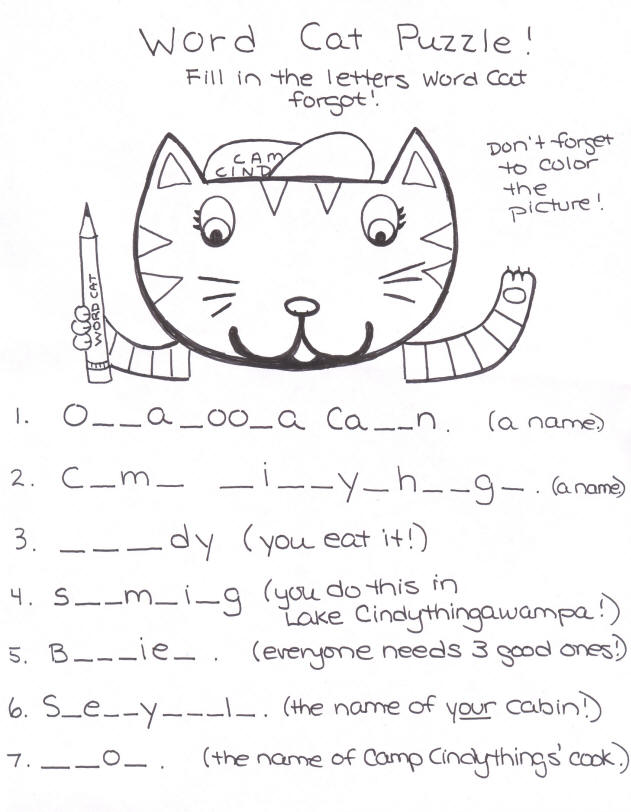 Word Cat Puzzle!
Fill in the letters Word Cat
forgot!
Don't forget
to color
the
picture!
CAM
CIND
WORD CAT
1. O__a_oo_a Ca__n. (a name.)
2. C_m_ _i__y_h__g_. (a name)
3. ____dy (you eat it!)
4. S__m_i_g (you do this in
Lake Cindythingawampa!)
5. B___ie_. (everyone needs 3 good ones!)
6. S_e__y___l_. (the name of your cabin!)
7. __o_. (the name of Camp Cindythings' cook.)